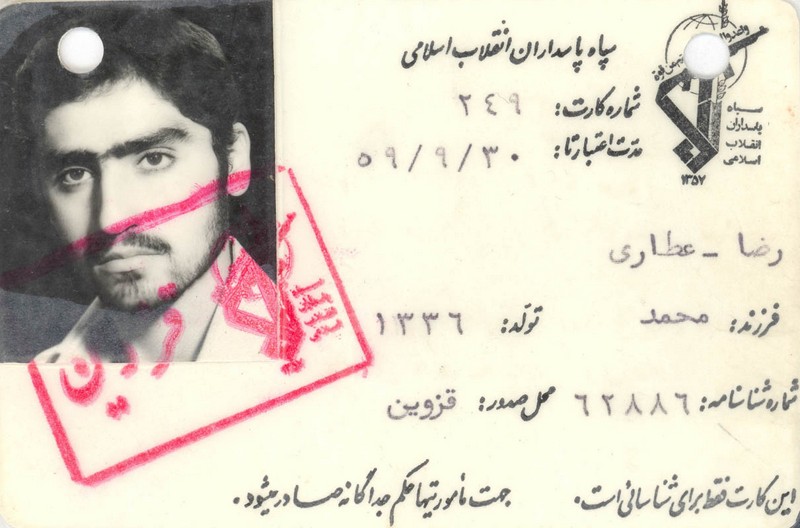 سپاه پاسداران انقلاب اسلامی
شماره کارت: ۲۴۹
مدت اعتبار تا: ۵۹/۹/۳۰
سپاه
پاسداران
انقلاب
اسلامی
۱۳۵۷
رضا - عطاری
فرزند: محمد تولد: ۱۳۳۶
شماره شناسنامه: ۶۲۸۸۶ محل صدور: قزوین
این کارت فقط برای شناسائی است. جهت مأموریتها حکم جداگانه صادر میشود.
قزوین